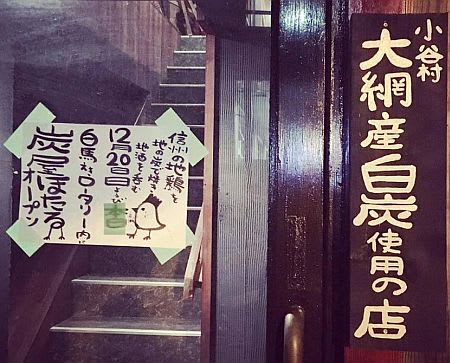 小谷村
大網産白炭使用の店
信州の地鶏を
地の炭で焼き
地酒を呑む
12月20日
白馬村ロータリー内に
炭屋ほたる
オープン